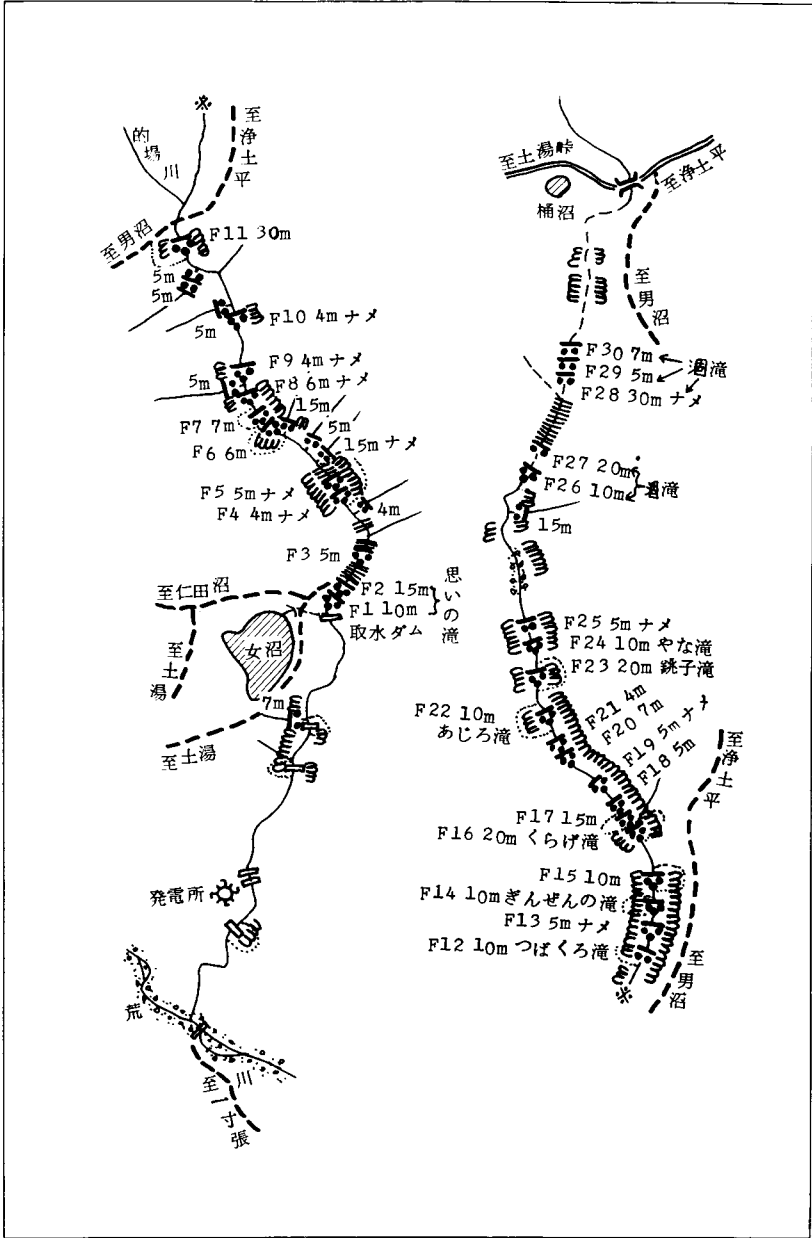 ※
的場川
至浄土平
至男沼
F11 30m
5m
5m
F10 4mナメ
5m
F9 4mナメ
5m
F8 6mナメ
15m
F7 7m
5m
F6 6m
15mナメ
F5 5mナメ
F4 4mナメ
4m
F3 5m
思いの滝
F2 15m
F1 10m
取水ダム
至仁田沼
女沼
至土湯
7m
至土湯
発電所
荒川
至一寸張
至土湯峠
至浄土平
桶沼
至男沼
F30 7m
F29 5m
涸滝
F28 30mナメ
F27 20m
F26 10m
涸滝
15m
F25 5mナメ
F24 10mやな滝
F23 20m 銚子滝
F22 10m
あじろ滝
F21 4m
F20 7m
F19 5mナメ
F18 5m
至浄土平
F17 15m
F16 20mくらげ滝
F15 10m
F14 10mぎんぜんの滝
F13 5mナメ
F12 10mつばくろ滝
至男沼
※